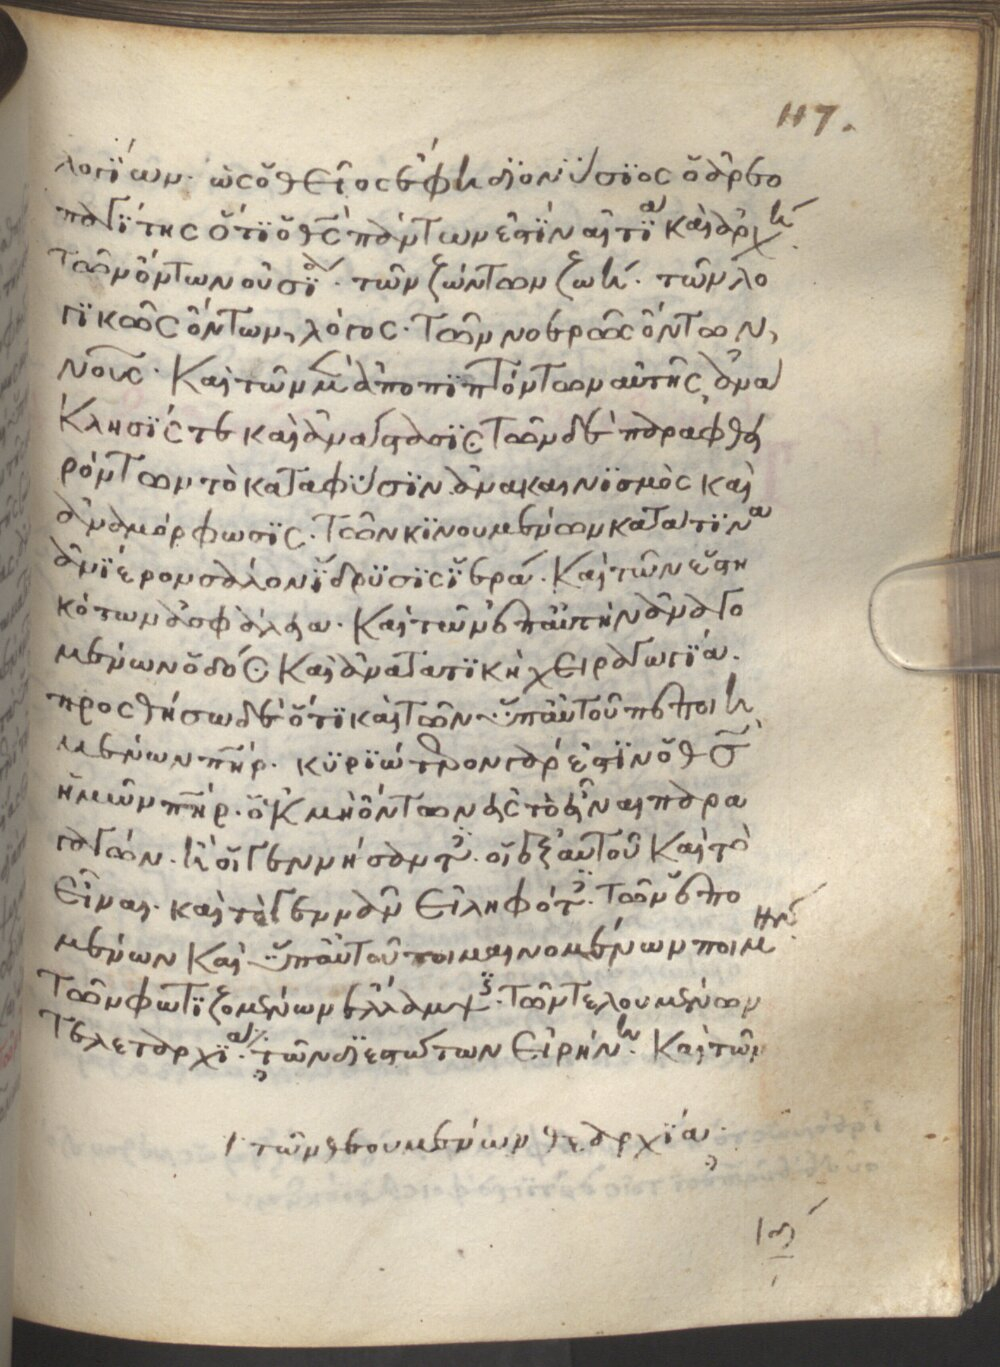 λογίων. ὡς ὁ θεῖος ἔφη διονύσιος ὁ ἀρεο
παγίτης ὅτι ὁ θς πάντων ἐστὶν αἰτία καὶ ἀρχή.
τῶν ὄντων οὐσία. τῶν ζώντων ζωή. τῶν λο
γικῶς ὄντων, λόγος. τῶν νοερῶς ὄντων,
νοῦς. καὶ τῶν μὲν ἀποπιπτόντων αὐτῆς, ἀνα
κλησίς τε καὶ ἀνάστασις. τῶν δὲ παραφθει
ρόντων τὸ κατα φύσιν. ἀνακαινισμὸς καὶ
ἀναμόρφωσις. τῶν κινουμένων κατα τινα
ἀνίερον σάλον ἵδρυσις ἱερά. καὶ τῶν ἑστη
κότων ἀσφάλεια. καὶ τῶν ἐπαὐτὴν ἀναγο
μένων ὁδός. καὶ ἀνατατικὴ χειραγωγία.
προσθήσω δὲ ὅτι καὶ τῶν ὑπαὐτοῦ πεποιη
μένων πηρ. κυριώτερον γάρ ἐστιν ὁ θς
ἡμῶν πηρ. ὁ ἐκ μὴ ὄντων εἰς τὸ εἶναι παρα
γαγών. ἢ οἱ γεννήσαντες. οἱ ἐξ αὐτοῦ καὶ τὸ
εἶναι. καὶ τὸ γεννᾶν εἰληφότες. τῶν ἑπο
μένων καὶ ὑπαὐτοῦ ποιμαινομένων ποιμήν.
τῶν φωτιζομένων ἔλλαμψις. τῶν τελουμένων
τελεταρχία. τῶν διεστώτων εἰρήνη. καὶ τῶν
τῶν θεουμένων θεαρχία.
117.